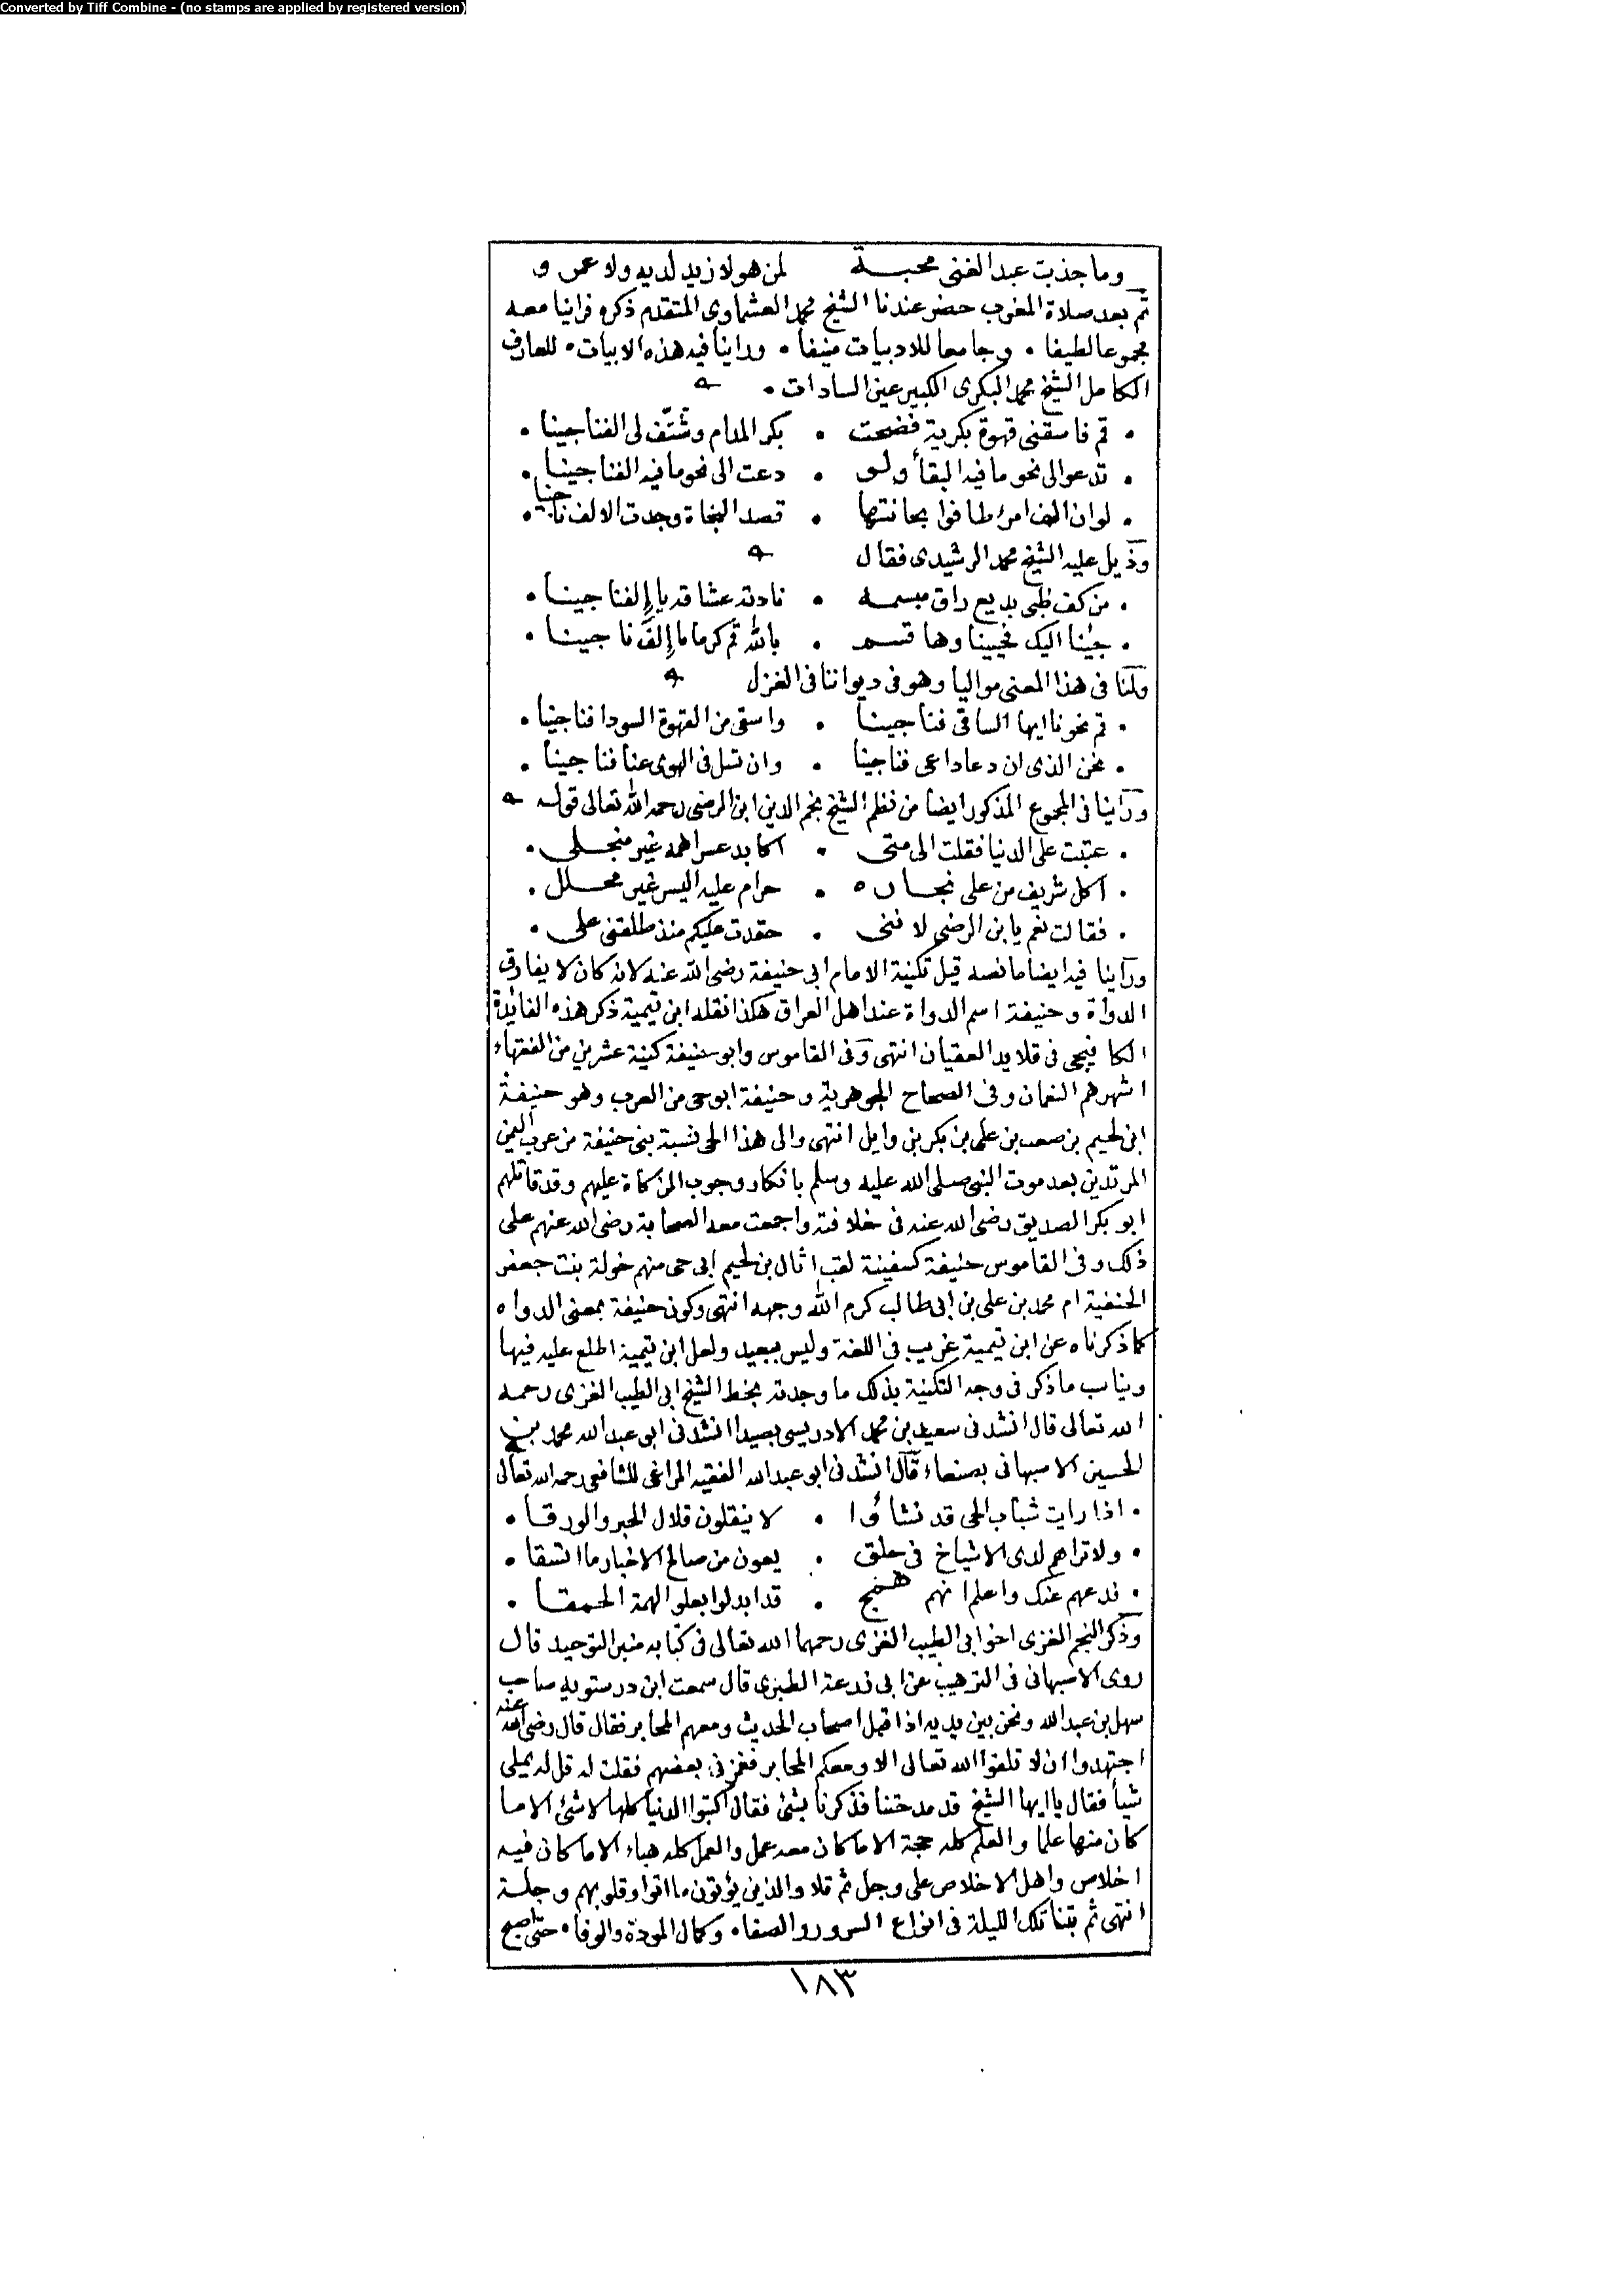 Converted by Tiff Combine - (no stamps are applied by registered version)
وما جذبت عبد الغنى محبة لمن هو لا زيد لديه ولا عمرو
ثم بعد صلاة المغرب حضر عندنا الشيخ محمد العشماوى المتقدم ذكره فراينا معه
مجموعا لطيفا ٠ وجامعا للادبيات منيفا ٠ وراينا فيه هذه الابيات ٠ للعارف
الكامل الشيخ محمد البكرى الكبير عين السادات ٠
٠ قم فاسقنى قهوة بكرية فضحت ٠ بكر المدام وشنّف لى الفناجينا ٠
٠ تدعو الى نحو ما فيه البقأ ولو ٠ دعت الى نحو ما فيه الفنا جينا ٠
٠ لو ان الف امرء طافوا بحانتها ٠ قصد النجاة وجدت الالف ناجينا ٠
وذيل عليه الشيخ محمد الرشيدى فقال
٠ من كف ظبى بديع راق مبسمه ٠ نادته عشاقه يا إلفنا جينا ٠
٠ جئنا اليك فحيينا وها قسم ٠ بالله قم كرما ما إلفَ ناجينا ٠
ولنا فى هذا المعنى مواليا وهو فى ديواننا فى الغزل
٠ قم نحونا ايها الساقى فناجينا ٠ واسقى من القهوة السودا فناجينا ٠
٠ نحن الذى ان دعا داعى فنا جينا ٠ وان تسل فى الهوى عنا فناجينا ٠
وراينا فى المجموع المذكور ايضا من نظم الشيخ نجم الدين ابن الرضى رحمه الله تعالى قوله
٠ عتبت على الدنيا فقلت الى متى ٠ اكابد عسرا همه غير منجلى ٠
٠ اكل شريف من على نجاره ٠ حرام عليه اليسر غير محلل ٠
٠ فقالت نعم يا ابن الرضى لا ننى ٠ حقدت عليكم منذ طلقنى على ٠
وراينا فيه ايضا ما نصه قيل تكنية الامام ابى حنيفة رضى الله عنه لانه كان لا يفارق
الدواة وحنيفة اسم الدواة عند اهل العراق هكذا نقله ابن تيمية ذكر هذه الفائدة
الكافيجى فى قلايد العقيان انتهى وفى القاموس وابو حنيفة كنية عشرين من الفقهاء
اشهرهم النعمان وفى الصحاح الجوهرية وحنيفة ابو حى من العرب وهو حنيفة
ابن لجيم بن صعب بن على بن بكر بن وايل انتهى والى هذا الحى نسبة بنى حنيفة من عرب اليمن
المرتدين بعد موت النبى صلى الله عليه وسلم بانكار وجوب الزكاة عليهم وقد قاتلهم
ابو بكر الصديق رضى الله عنه فى خلافته واجمعت معه الصحابة رضى الله عنهم على
ذلك وفى القاموس حنيفة كسفينة لقب اثال بن لجيم ابى حى منهم خولة بنت جعفر
الحنفية ام محمد بن على بن ابى طالب كرم الله وجهه انتهى وكون حنيفة بمعنى الدواه
كما ذكرناه عن ابن تيمية غريب فى اللغة وليس ببعيد ولعل ابن تيمية اطلع عليه فيها
ويناسب ما ذكر فى وجه التكنية بذلك ما وجدته بخط الشيخ ابى الطيب الغزى رحمه
الله تعالى قال انشدنى سعيد بن محمد الادريسى بصيدا انشدنى ابو عبد الله محمد بن
الحسين الاصبهانى بصنعاء قال انشدنى ابو عبد الله الفقيه المراغى للشافعى رحمه الله تعالى
٠ اذا رايت شباب الحى قد نشاؤا ٠ لا ينقلون قلال الحبر والورقا ٠
٠ ولا تراهم لدى الاشياخ فى حلق ٠ يعون من صالح الاخبار ما اتسقا ٠
٠ فدعهم عنك واعلم انهم همج ٠ قد ابدلوا بعلو الهمة الحمقا ٠
وذكر النجم الغزى اخو ابى الطيب الغزى رحمهما الله تعالى فى كتابه منبر التوحيد قال
روى الاصبهانى فى الترهيب عن ابى زرعة الطبرى قال سمعت ابن درستويه صاحب
سهل بن عبد الله ونحن بين يديه اذ اقبل اصحاب الحديث ومعهم المحابر فقال قال رضى الله عنه
اجتهدوا ان لا تلقوا الله تعالى الا ومعكم المحابر فغمزنى بعضهم فقلت له قل له يملى
شيأ فقال يا ايها الشيخ قد مدحتنا فذكرنا بشئ فقال اكتبوا الدنيا كلها لا شئ الا ما
كان منها علما والعلم كله حجة الا ما كان معه عمل والعمل كله هباء الا ما كان فيه
اخلاص واهل الاخلاص على وجل ثم تلا والذين يؤتون ما اتوا وقلوبهم وجلة
انتهى ثم بتنا تلك الليلة فى انواع السرور والصفا ٠ وكمال المودة والوفا ٠ حتى اصبح
١٨٣